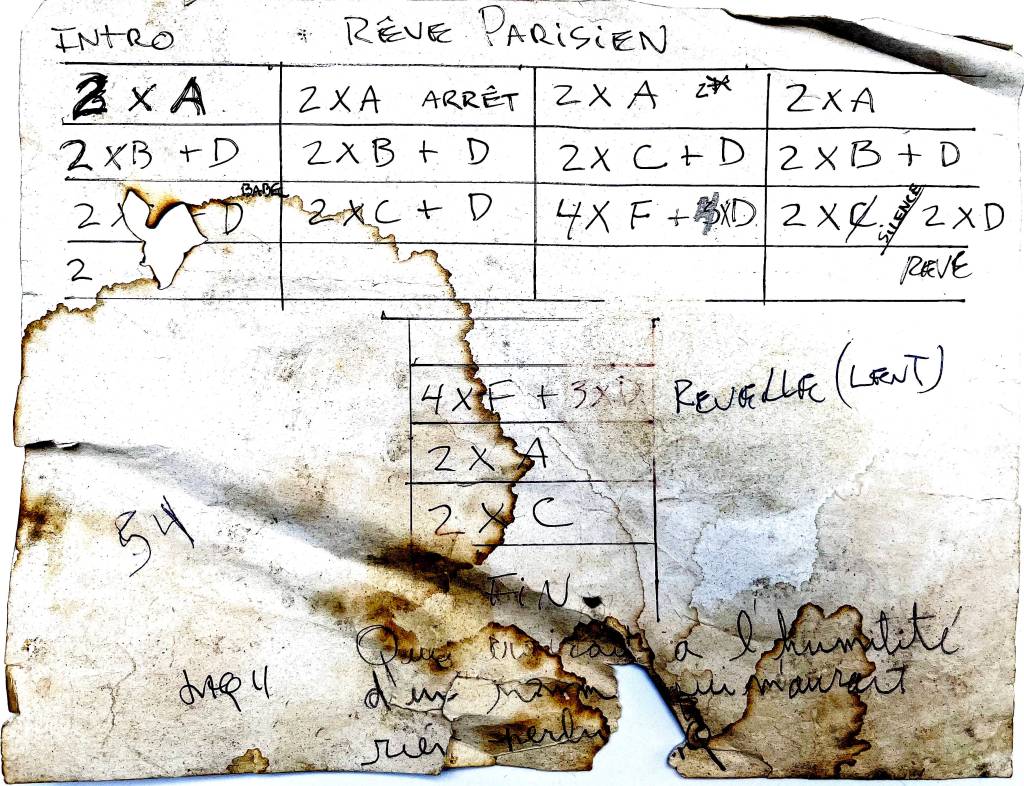 INTRO RÊVE PARISIEN
2 X A 2 X A ARRÊT 2 X A 2X 2 X A
2 X B + D 2 X B + D 2 X C + D 2 X B + D
BABE
2 X + D 2 X C + D 4 X F + 3XD 2 X C SILENCE 2 X D
2 REVE
4 X F + 3 X D REVEILLE (LENT)
2 X A
2 X C
54
FIN.
Que à l'humilité
d'un qui m'aurait
rien perdu